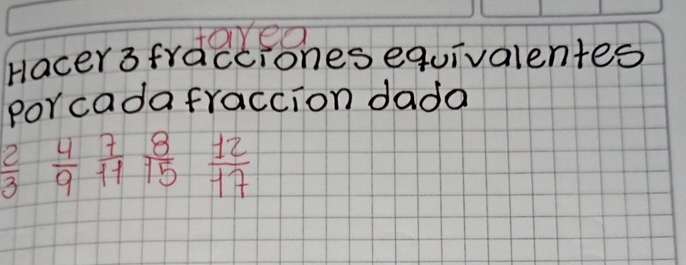 tarea
Hacer 3 fracciones equivalentes
por cada fraccion dada
2/3 4/9 7/11 8/15 12/17